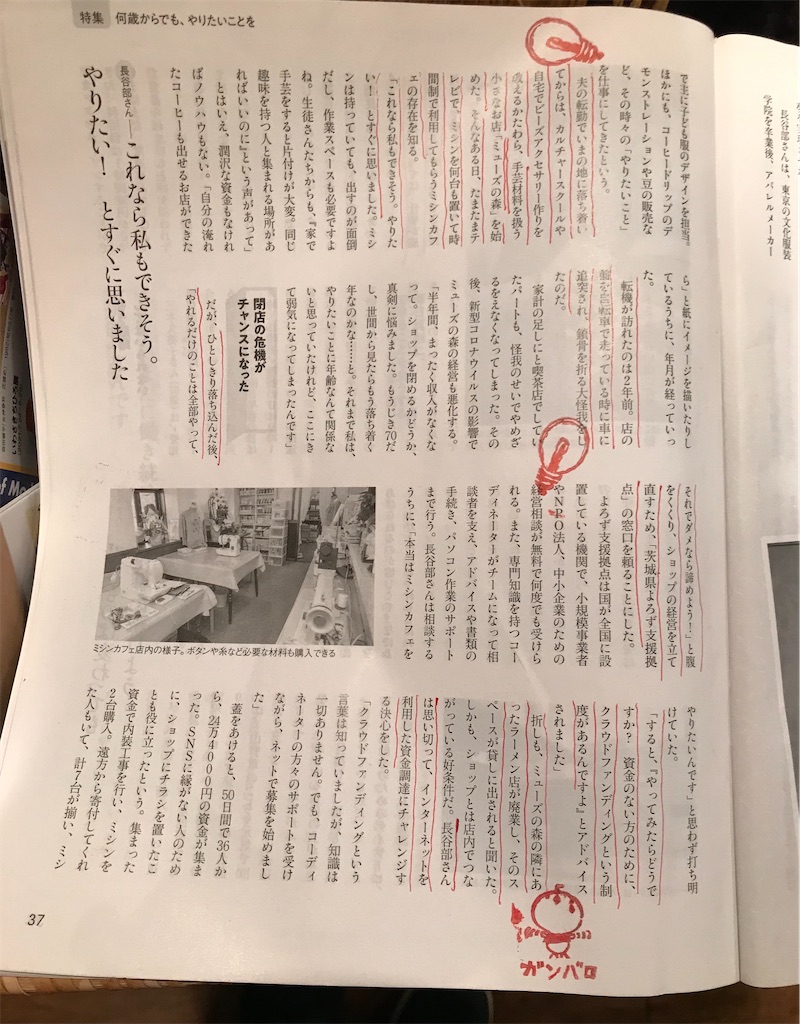 特集 何歳からでも、やりたいことを
長谷部さんは、東京の文化服装
学院を卒業後、アパレルメーカー
で主に子ども服のデザインを担当。
ほかにも、コーヒードリップのデ
モンストレーションや豆の販売な
ど、その時々の「やりたいこと」
を仕事にしてきたという。
夫の転勤でいまの地に落ち着い
てからは、カルチャースクールや
自宅でビーズアクセサリー作りを
教えるかたわら、手芸材料を扱う
小さなお店「ミューズの森」を始
めた。そんなある日、たまたまテ
レビで、ミシンを何台も置いて時
間制で利用してもらうミシンカフ
ェの存在を知る。
「これなら私もできそう。やりた
い！ とすぐに思いました。ミシ
ンは持っていても、出すのが面倒
だし、作業スペースも必要ですよ
ね。生徒さんたちからも、『家で
手芸をすると片付けが大変。同じ
趣味を持つ人と集まれる場所があ
ればいいのに』という声があって」
とはいえ、潤沢な資金もなけれ
ばノウハウもない。「自分の淹れ
たコーヒーも出せるお店ができた
長谷部さん──これなら私もできそう。
やりたい！ とすぐに思いました
ら」と紙にイメージを描いたりし
ているうちに、年月が経っていっ
た。
転機が訪れたのは2年前。店の
前を自転車で走っている時に車に
追突され、鎖骨を折る大怪我をし
たのだ。
家計の足しにと喫茶店でしてい
たパートも、怪我のせいでやめざ
るをえなくなってしまった。その
後、新型コロナウイルスの影響で
ミューズの森の経営も悪化する。
「半年間、まったく収入がなくな
って。ショップを閉めるかどうか、
真剣に悩みました。もうじき70だ
し、世間から見たらもう落ち着く
年なのかな……と。それまで私は、
やりたいことに年齢なんて関係な
いと思っていたけれど、ここにき
て弱気になってしまったんです」
閉店の危機が
チャンスになった
だが、ひとしきり落ち込んだ後、
「やれるだけのことは全部やって、
それでダメなら諦めよう！」と腹
をくくり、ショップの経営を立て
直すため、「茨城県よろず支援拠
点」の窓口を頼ることにした。
よろず支援拠点は国が全国に設
置している機関で、小規模事業者
やNPO法人、中小企業のための
経営相談が無料で何度でも受けら
れる。また、専門知識を持つコー
ディネーターがチームになって相
談者を支え、アドバイスや書類の
手続き、パソコン作業のサポート
まで行う。長谷部さんは相談する
うちに、「本当はミシンカフェを
ミシンカフェ店内の様子。ボタンや糸など必要な材料も購入できる
やりたいんです」と思わず打ち明
けていた。
「すると、『やってみたらどうで
すか？ 資金のない方のために、
クラウドファンディングという制
度があるんですよ』とアドバイス
されました」
折しも、ミューズの森の隣にあ
ったラーメン店が廃業し、そのス
ペースが貸しに出されると聞いた。
しかも、ショップとは店内でつな
がっている好条件だ。長谷部さん
は思い切って、インターネットを
利用した資金調達にチャレンジす
る決心をした。
「クラウドファンディングという
言葉は知っていましたが、知識は
一切ありません。でも、コーディ
ネーターの方々のサポートを受け
ながら、ネットで募集を始めまし
た」
蓋をあけると、50日間で36人か
ら、24万4000円の資金が集ま
った。SNSに縁がない人のため
に、ショップにチラシを置いたこ
とも役に立ったという。集まった
資金で内装工事を行い、ミシンを
2台購入。遠方から寄付してくれ
た人もいて、計7台が揃い、ミシ
ガンバロ
37